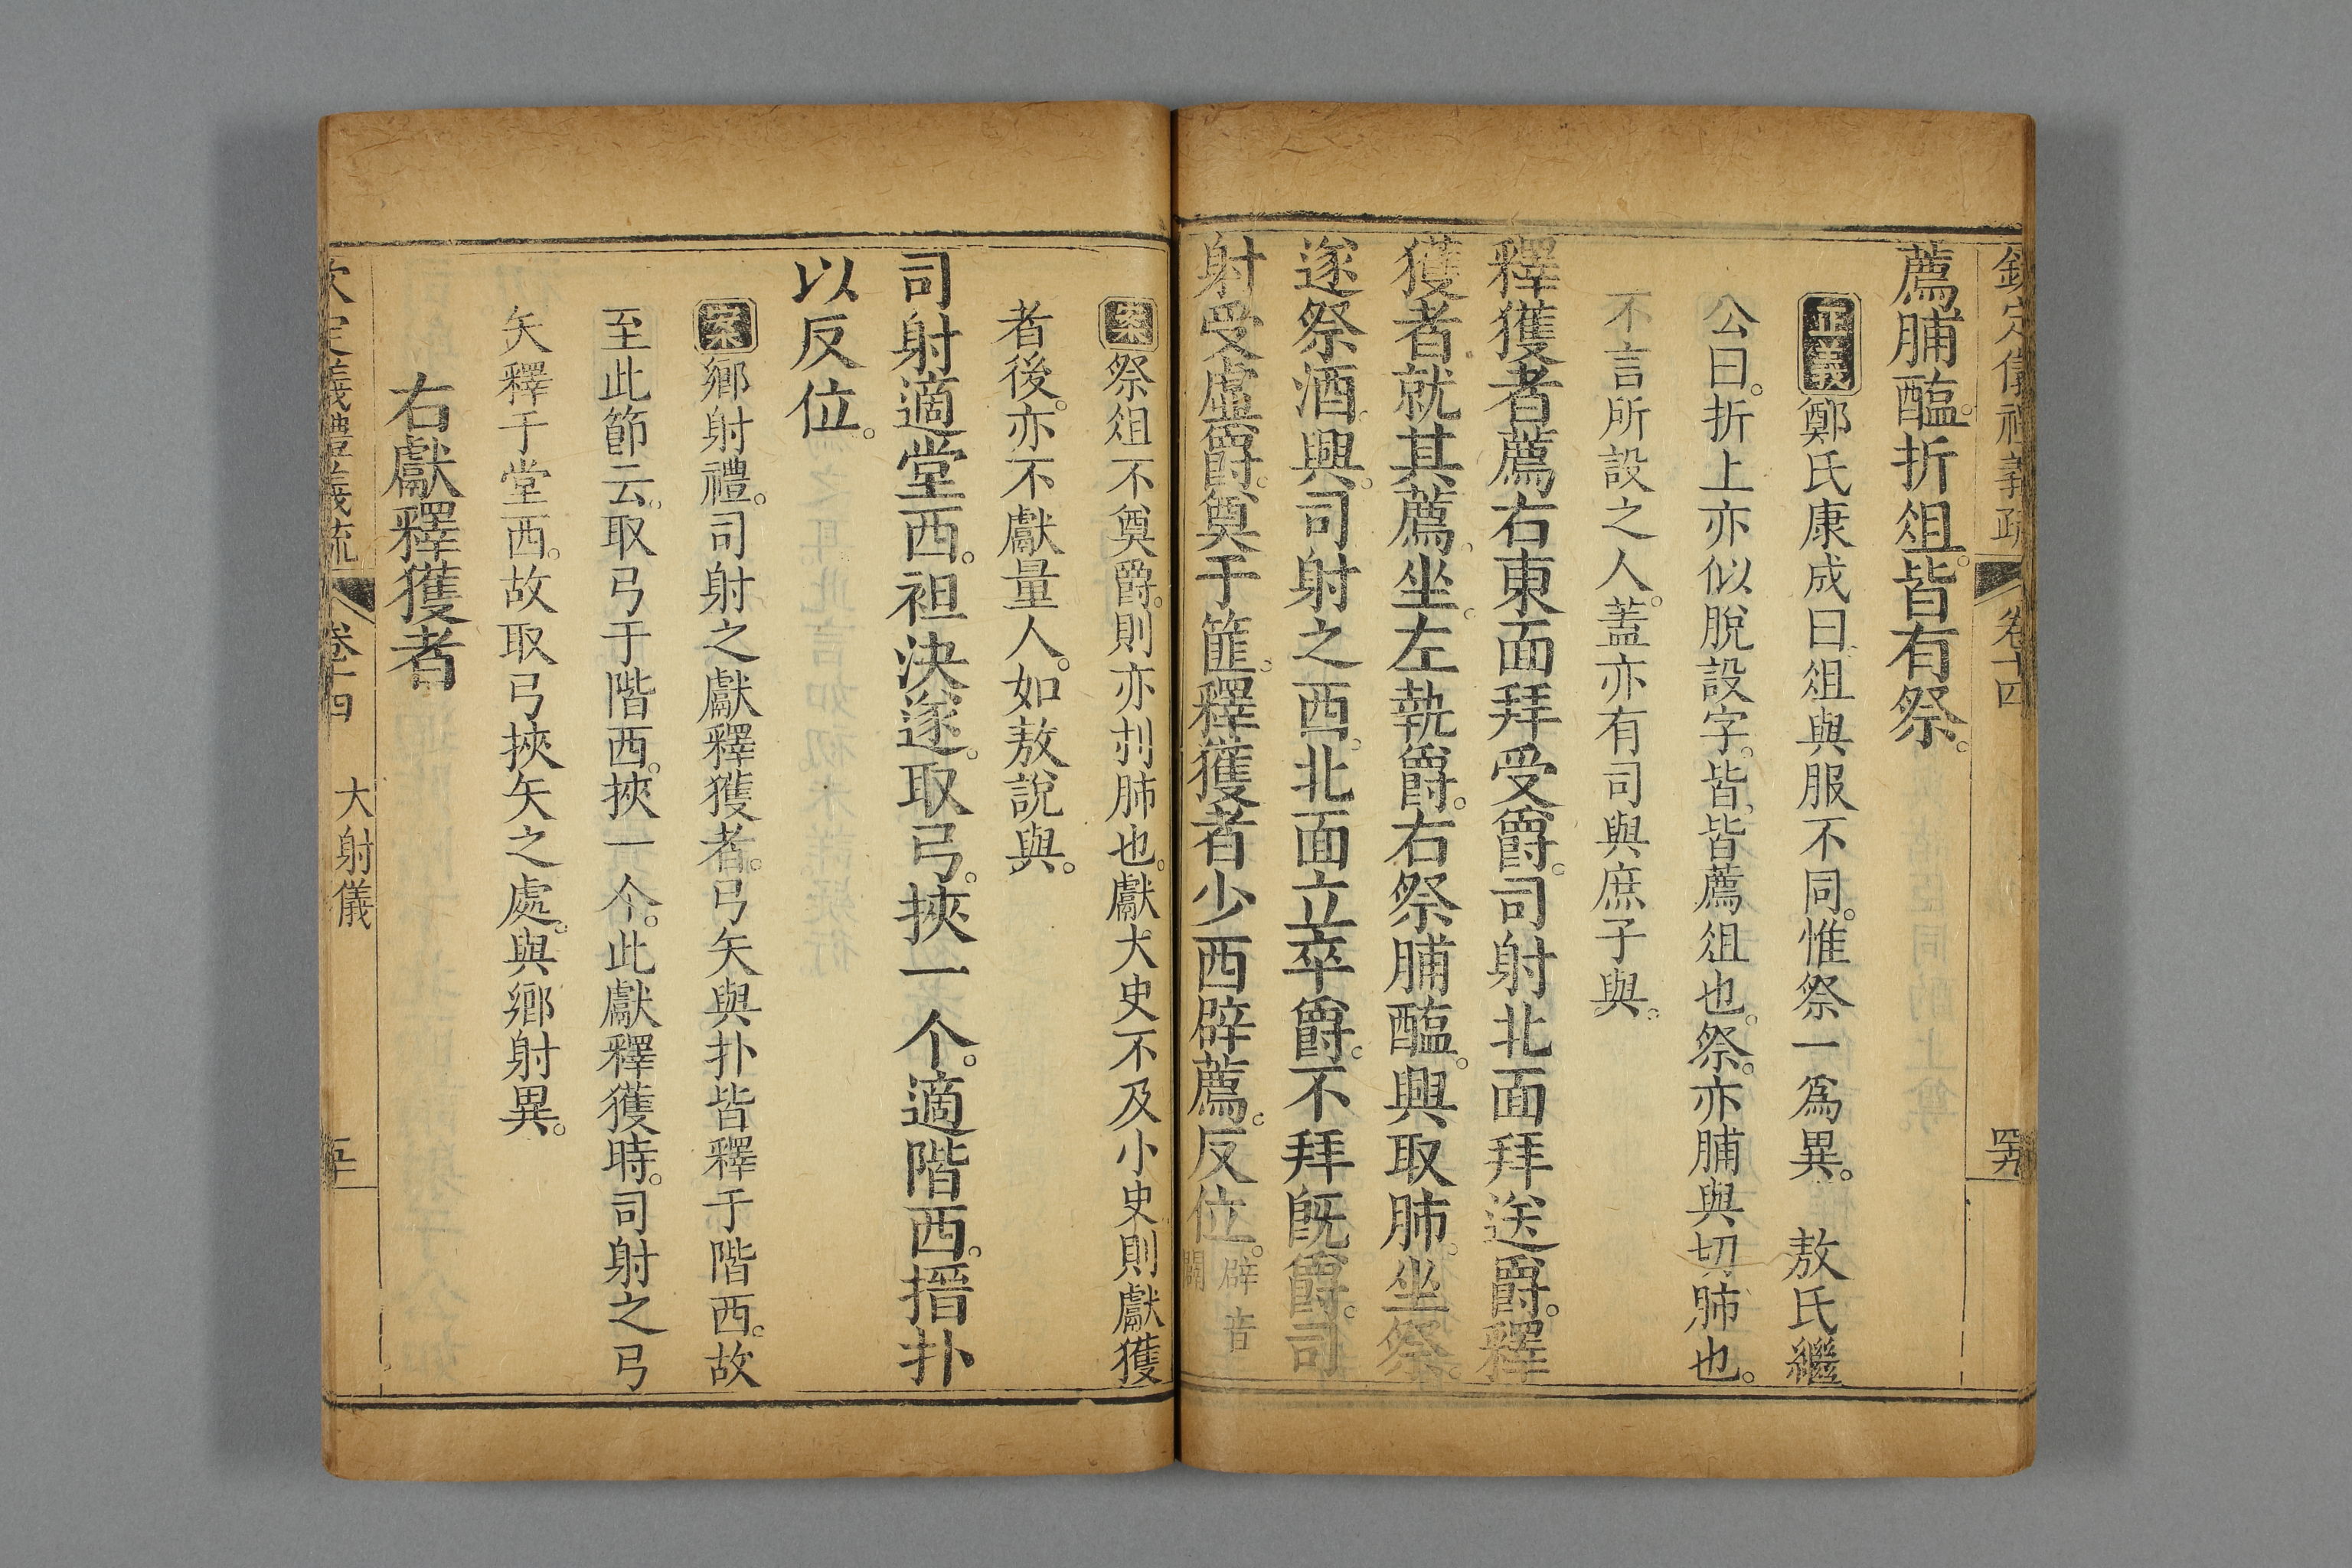 欽定儀禮義疏 卷十四 四九
薦脯醢。折俎。皆有祭。
正義鄭氏康成曰。俎與服不同。惟祭一爲異。 敖氏繼
公曰。折上亦似脫設字。皆、皆薦俎也。祭。亦脯與切肺也。
不言所設之人。蓋亦有司與庶子與。
釋獲者薦右東面拜受爵。司射北面拜送爵。釋
獲者就其薦。坐。左執爵。右祭脯醢。興取肺。坐祭。
遂祭酒。興。司射之西。北面立卒爵。不拜旣爵。司
射受虛爵。奠于篚。釋獲者少西辟薦。反位。辟音
闢
案祭俎不奠爵。則亦刌肺也。獻大史不及小史則獻獲
者後。亦不獻量人。如敖說與。
司射適堂西。袒決遂。取弓。挾一个。適階西。搢扑
以反位。
案鄉射禮。司射之獻釋獲者。弓矢與扑皆釋于階西。故
至此節云。取弓于階西。挾一个。此獻釋獲時。司射之弓
矢釋于堂西。故取弓挾矢之處。與鄉射異。
右獻釋獲者
欽定儀禮義疏 卷十四 大射儀 五十